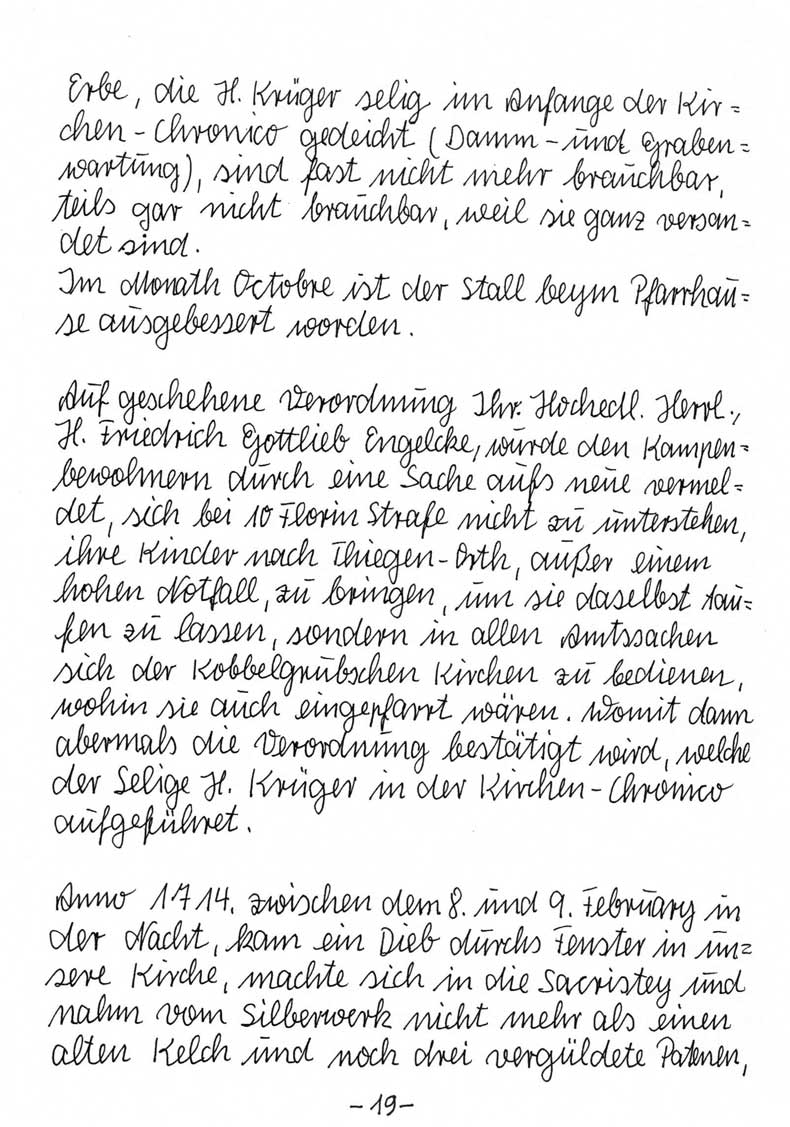 Erbe, die H. Krüger selig im Anfange der Kir=
chen-Chronico gedeicht (Damm- und Graben=
wartung), sind fast nicht mehr brauchbar,
teils gar nicht brauchbar, weil sie ganz versan=
det sind.
Im Monath Octobre ist der Stall beym Pfarrhau=
se ausgebessert worden.
Auf geschehene Verordnung Ihr. Hochedl. Herrl.,
H. Friedrich Gottlieb Engelcke, wurde den Kampen=
bewohnern durch eine Sache aufs neue vermel=
det, sich bei 10 Florin Strafe nicht zu unterstehen,
ihre Kinder nach Thiegen-Orth, außer einem
hohen Notfall, zu bringen, um sie daselbst tau=
fen zu lassen, sondern in allen Amtssachen
sich der Kobbelgrubschen Kirchen zu bedienen,
wohin sie auch eingepfarrt wären. Womit dann
abermals die Verordnung bestätigt wird, welche
der Selige H. Krüger in der Kirchen-Chronico
aufgeführet.
Anno 1714. zwischen dem 8. und 9. February in
der Nacht, kam ein Dieb durchs Fenster in un=
sere Kirche, machte sich in die Sacristey und
nahm vom Silberwerk nicht mehr als einen
alten Kelch und noch drei vergüldete Patenen,
-19-